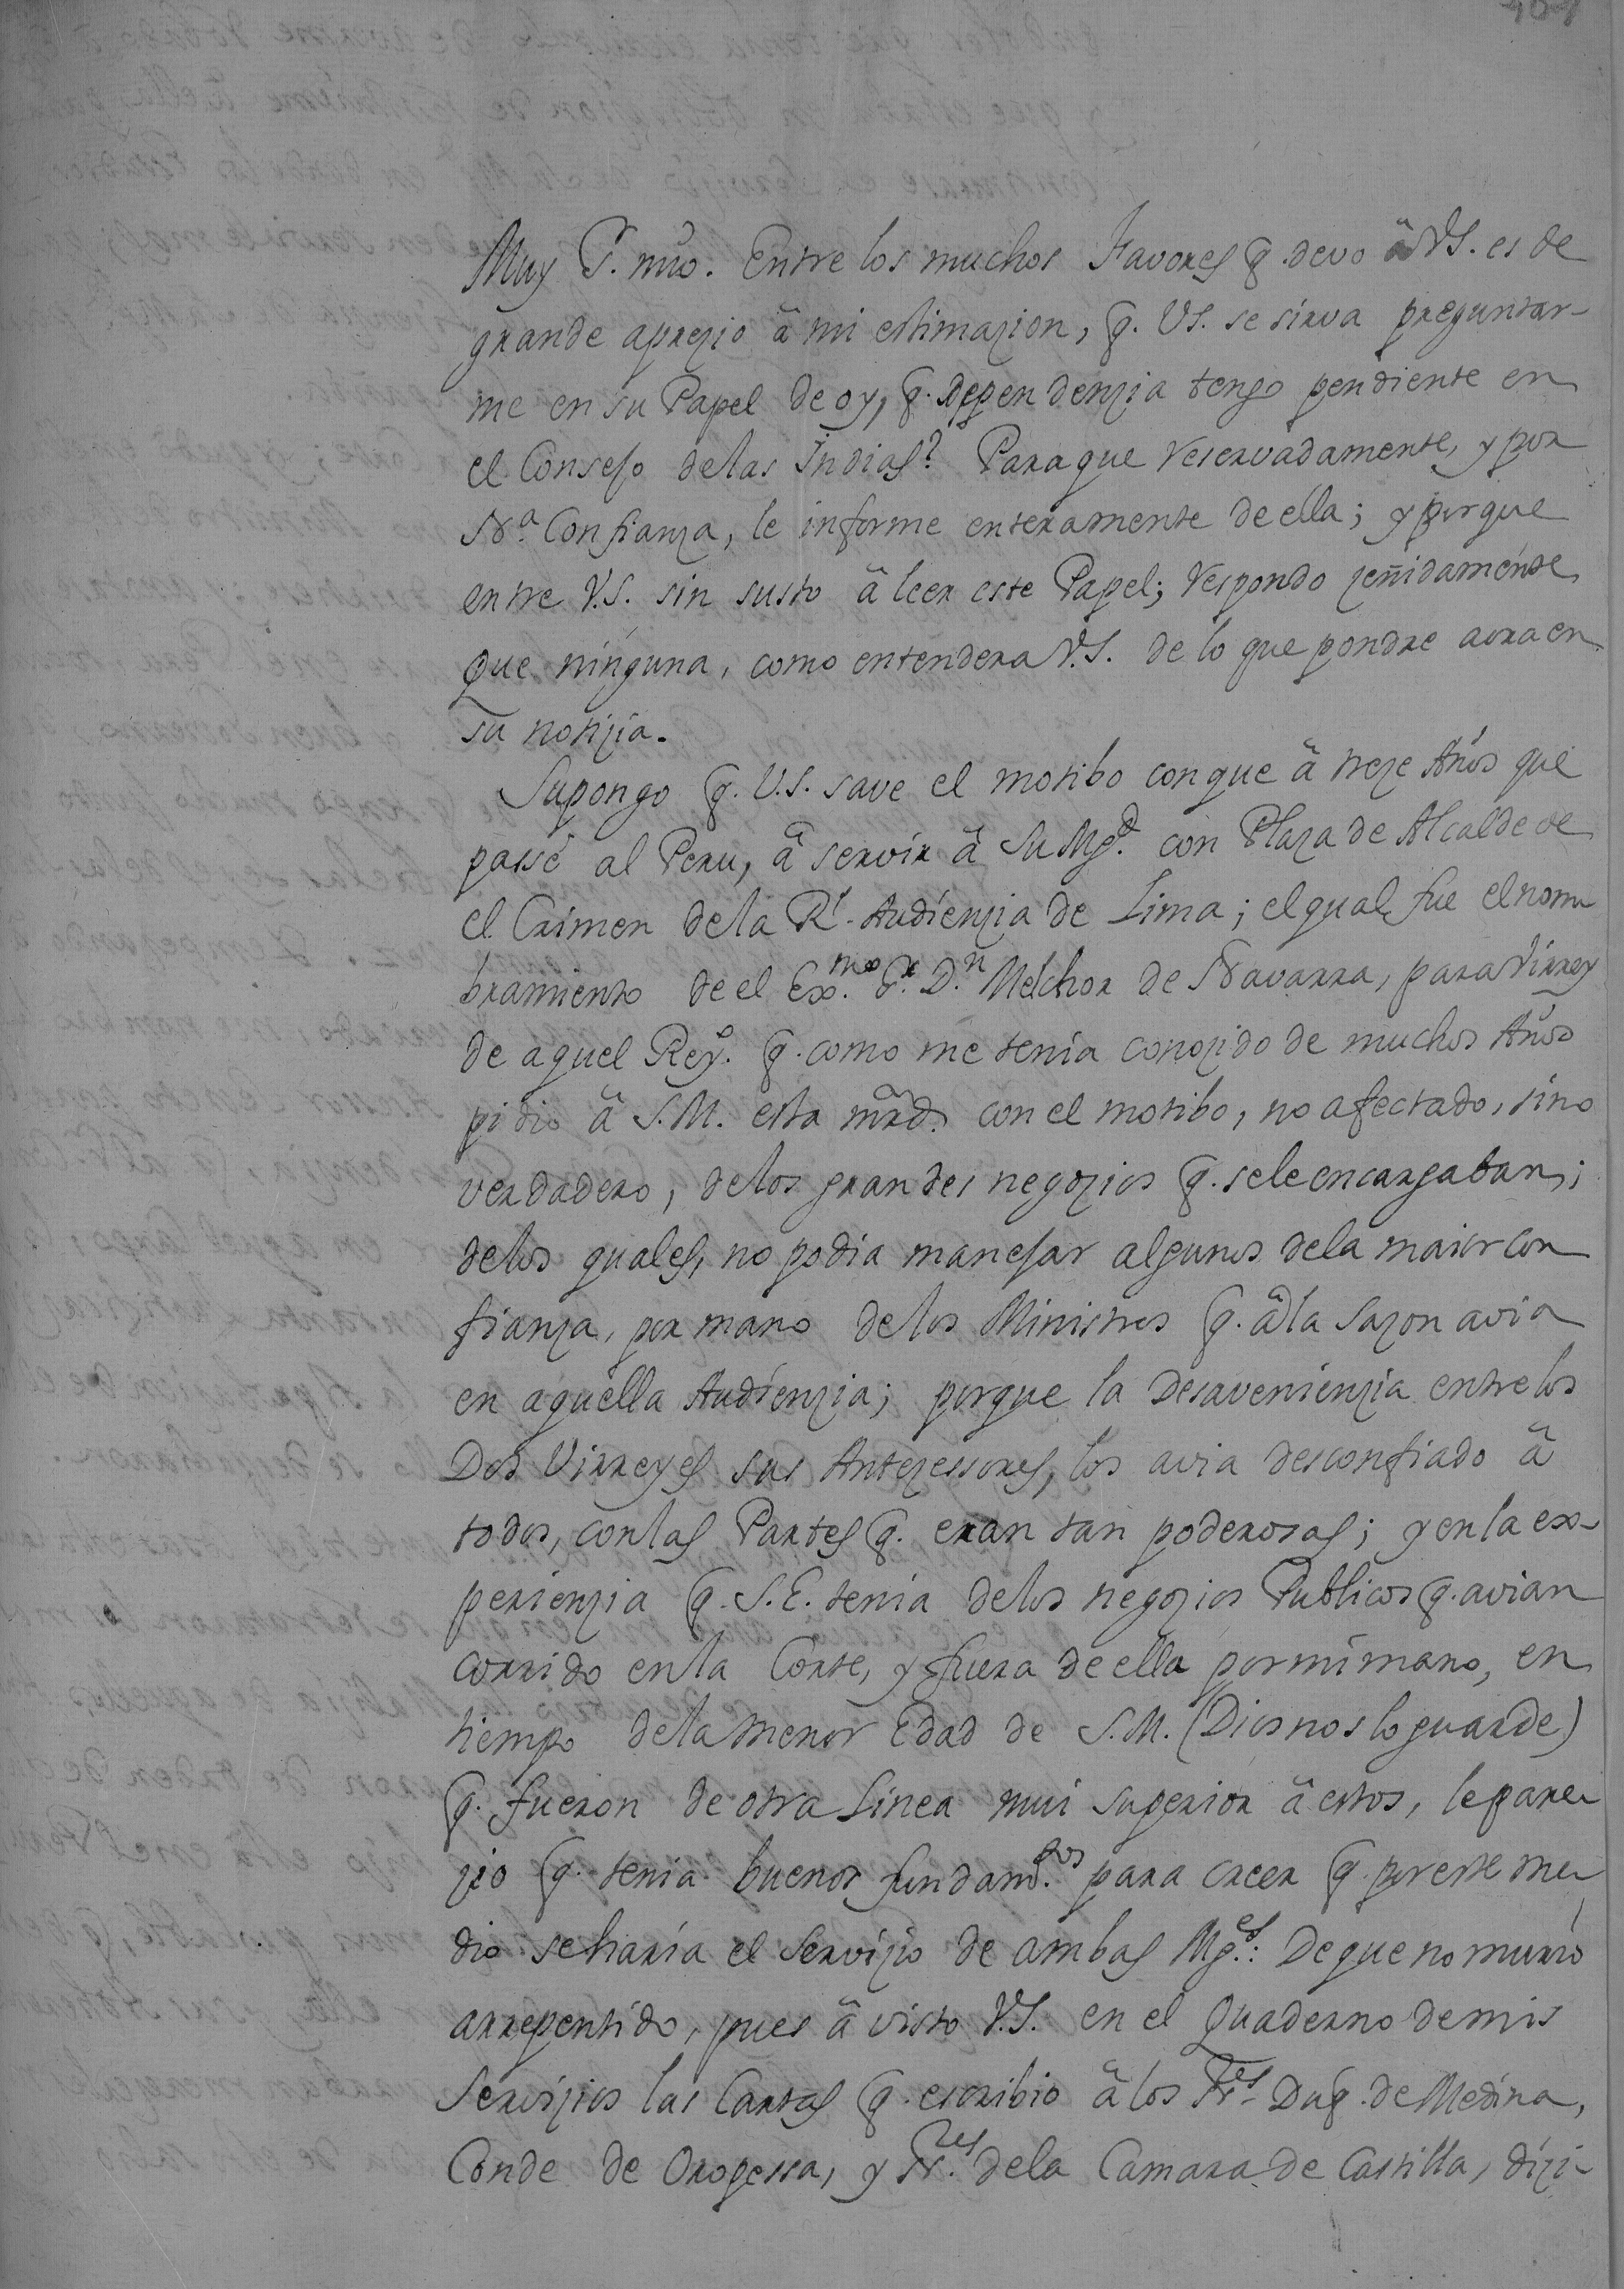 Muy S. mio. Entre los muchos Favores q. devo â VS. es de
grande aprezio â mi estimazion, q. VS. se sirva preguntar-
me en su Papel de oy, q. dependenzia tengo pendiente en
el Consejo delas Indias? Paraque reservadamente, y por
Na. Confianza, le informe enteramente de ella; y porque
entre V.S. sin susto â leer este Papel; respondo zeñidamente
Que ninguna, como entendera V.S. de lo que pondre aora en
su notizia.
Supongo q. V.S. save el motibo con que â treze Años que
passé al Peru, â servir â Su Mgd. con Plaza de Alcalde de
el Crimen de la Rl. Audienzia de Lima; el qual fue el nom
bramiento de el Exmo. Sr. Dn. Melchor de Navarra, para Virrey
de aquel Reyo. q. como me tenia conozido de muchos Años
pidio â S.M. esta mrd. con el motibo, no afectado, sino
verdadero, delos grandes negozios q. sele encargaban;
delos quales, no podia manejar algunos dela maior con
fianza, por mano delos Ministros q. â la sazon avia
en aquella Audienzia; porque la Desavenienzia entre los
Dos Virreyes sus Antezessores, los avia desconfiado â
todos, con las Partes q. eran tan poderosas; y en la ex-
perienzia q. S.E. tenia delos negozios Publicos q. avian
corrido en la Corte, y fuera de ella por mi mano, en
tiempo dela menor Edad de S.M. (Dios nos lo guarde)
q. fueron de otra Linea mui superior â estos, le pare
zio q. tenia buenos fundamtos. para creer q. por este me
dio se haria el Servizio de ambas Mgdes.: De que no murió
arrepentido, pues â visto V.S. en el Quaderno de mis
Servizios las Cartas q. escribio â los Sres. Duq. de Medina,
Conde de Oropessa, y Sres. dela Camara de Castilla, dizi-